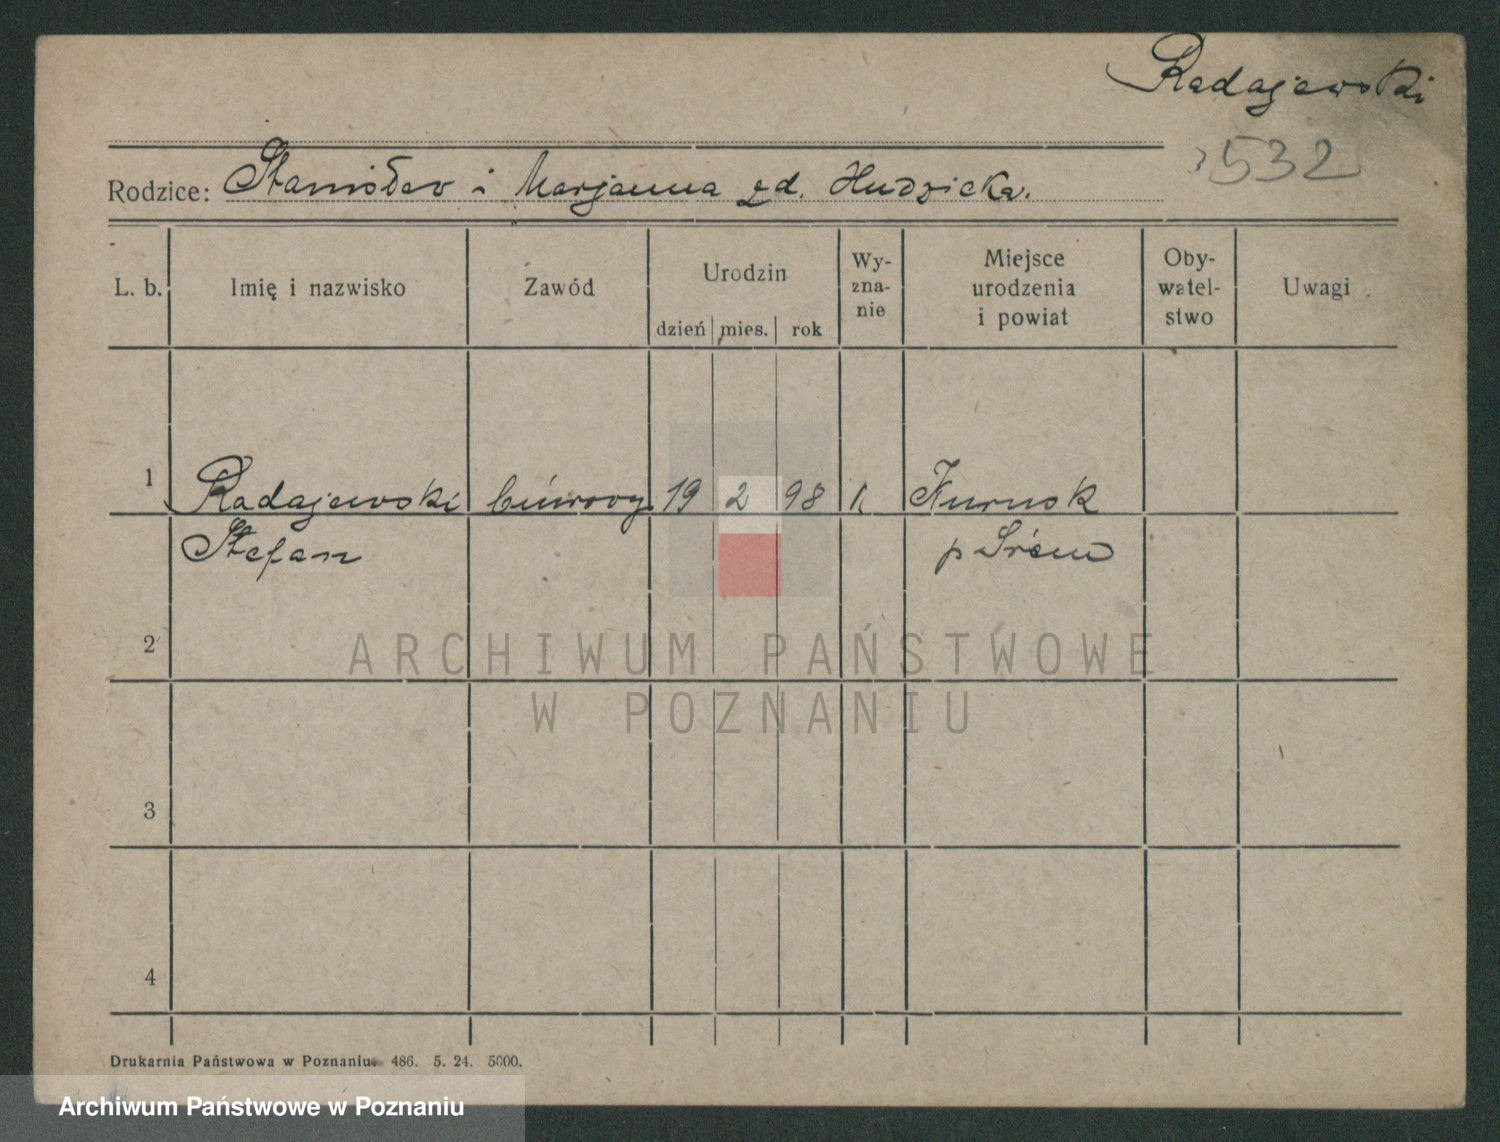 Radajewski
532
Rodzice: Stanisław i Marjanna zd. Hudzicka.
L. b. Imię i nazwisko Zawód Urodzin dzień mies. rok Wy-zna-nie Miejsce urodzenia i powiat Oby-watel-stwo Uwagi
1 Radajewski biurowy 19 2 98 k Kurnik
Stefan p Śrem
2
ARCHIWUM PAŃSTWOWE
W POZNANIU
3
4
Drukarnia Państwowa w Poznaniu. 486. 5. 24. 5000.
Archiwum Państwowe w Poznaniu